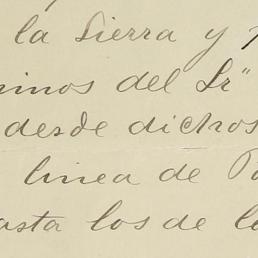 la Sierra y
inos del Sr"
desde dichos
linea de
asta los de